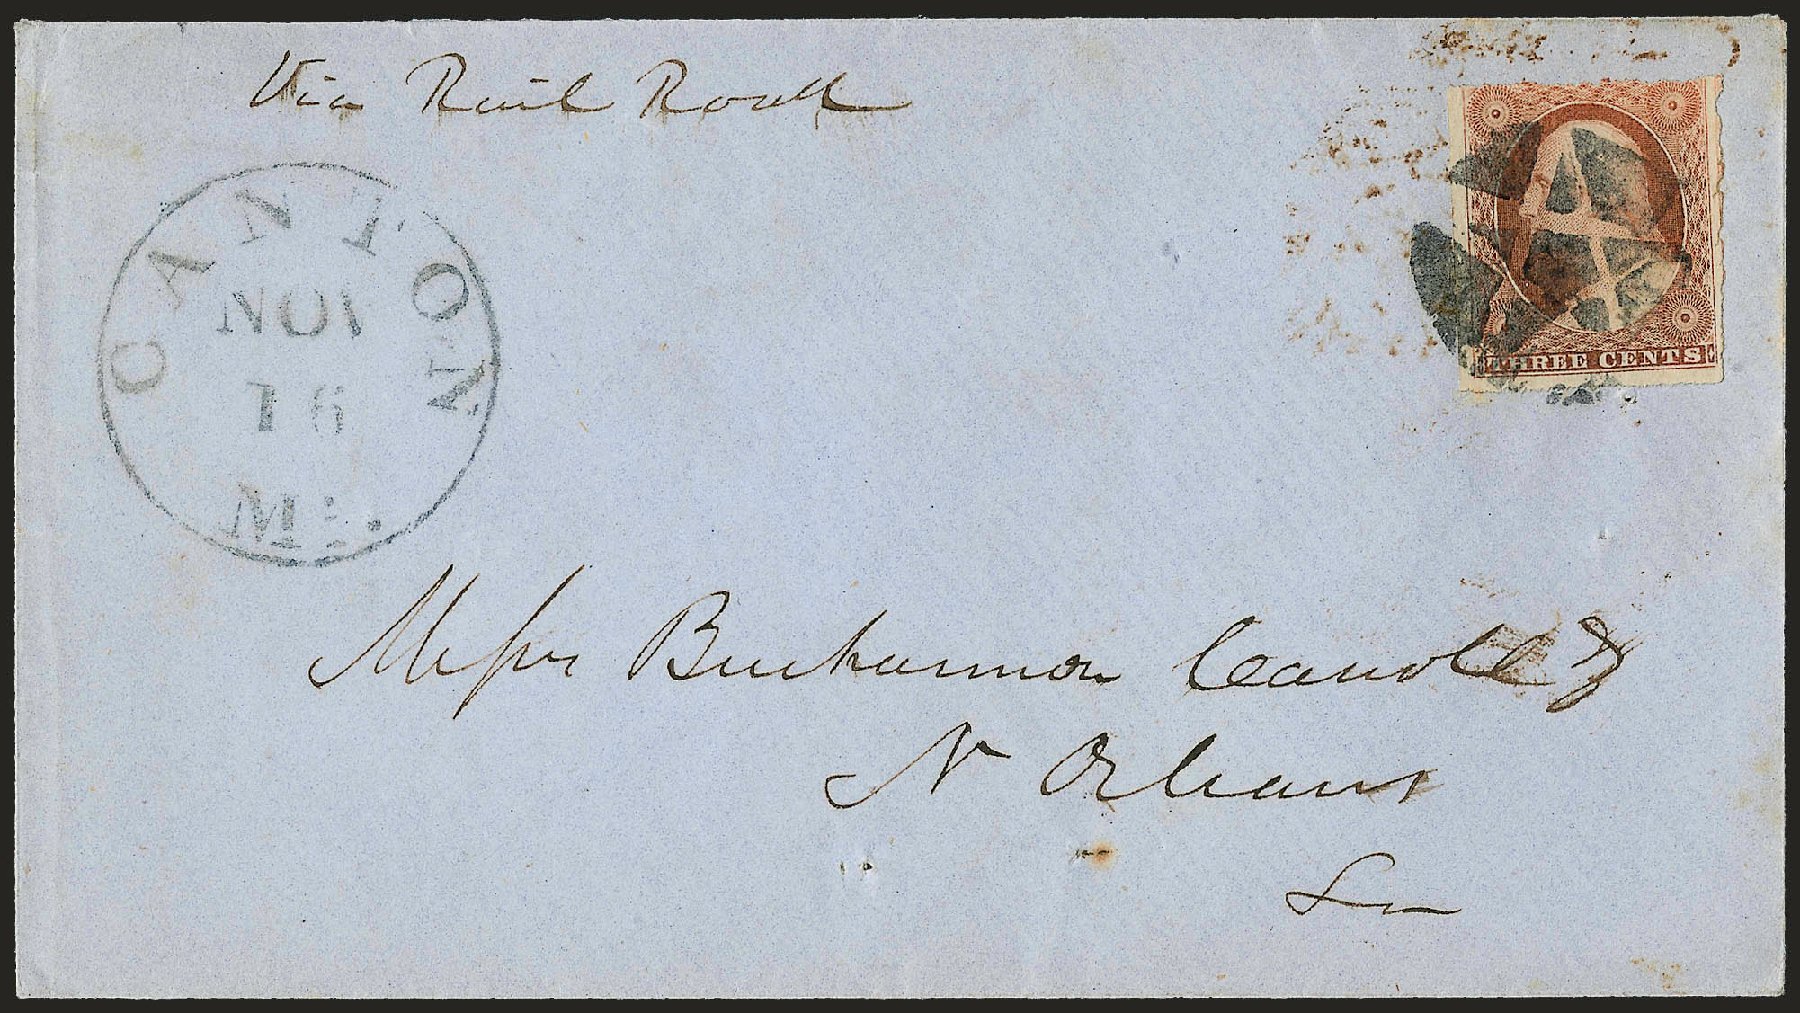 Via Rail Road
CANTON
NOV
16
Mi.
THREE CENTS
Messrs Buchannon Carroll &
N Orleans